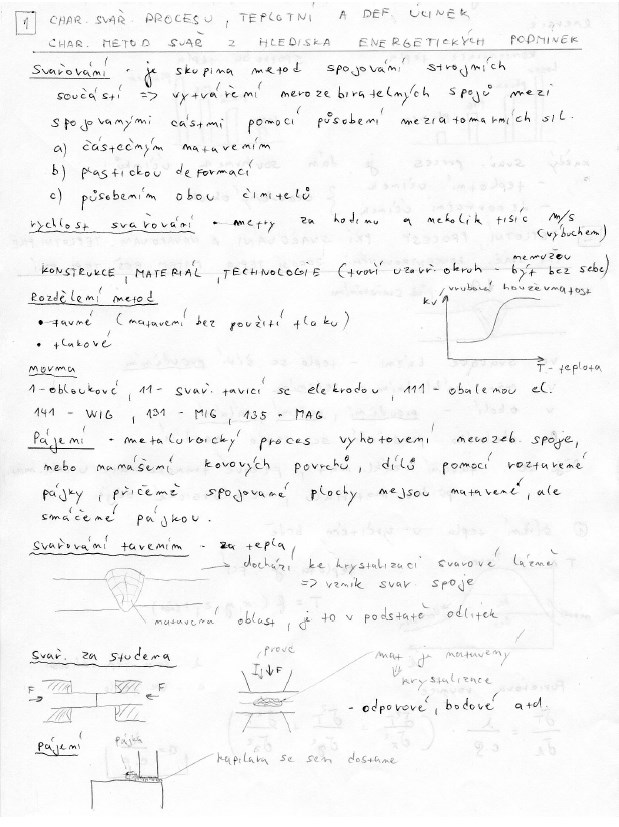 1 CHAR. SVAŘ. PROCESU, TEPLOTNÍ A DEF. ÚČINEK
CHAR. METOD SVAŘ Z HLEDISKA ENERGETICKÝCH PODMÍNEK
Svařování - je skupina metod spojování strojních
součástí => vytváření nerozebíratelných spojů mezi
spojovanými částmi pomocí působení meziatomárních sil.
a) částečným natavením
b) plastickou deformací
c) působením obou činitelů
rychlost svařování - metry za hodinu a několik tisíc m/s
(výbuchem)
KONSTRUKCE, MATERIÁL, TECHNOLOGIE (tvoří uzavř. okruh - nemůžou být bez sebe)
Rozdělení metod
• tavné (natavení bez použití tlaku)
• tlakové
KV
vrubová houževnatost
T - teplota
norma
1 - obloukové, 11 - svař. tavící se elektrodou, 111 - obalenou el.
141 - WIG, 131 - MIG, 135 - MAG
Pájení - metalurgický proces vyhotovení nerozeb. spoje,
nebo nanášení kovových povrchů, dílů pomocí roztavené
pájky přičemž spojované plochy nejsou natavené, ale
smáčené pájkou.
Svařování tavením - za tepla,
dochází ke krystalizaci svarové lázně
=> vznik svar. spoje
natavená oblast, je to v podstatě odlitek
Svař. za studena
F
F
F
mat je natavený
krystalizace
- odporové, bodové atd.
Pájení
pájka
kapilára se sem dostane